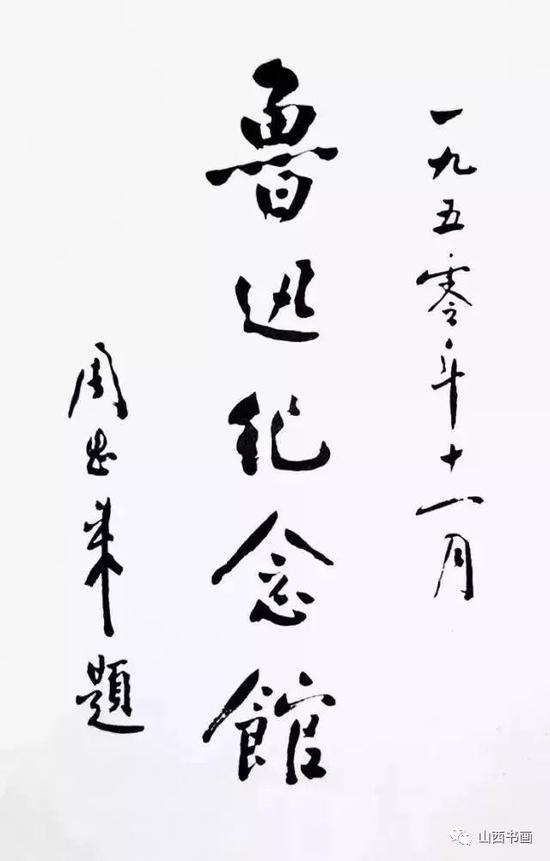 一九五零年十一月
魯迅纪念館
周恩来題
山西书画